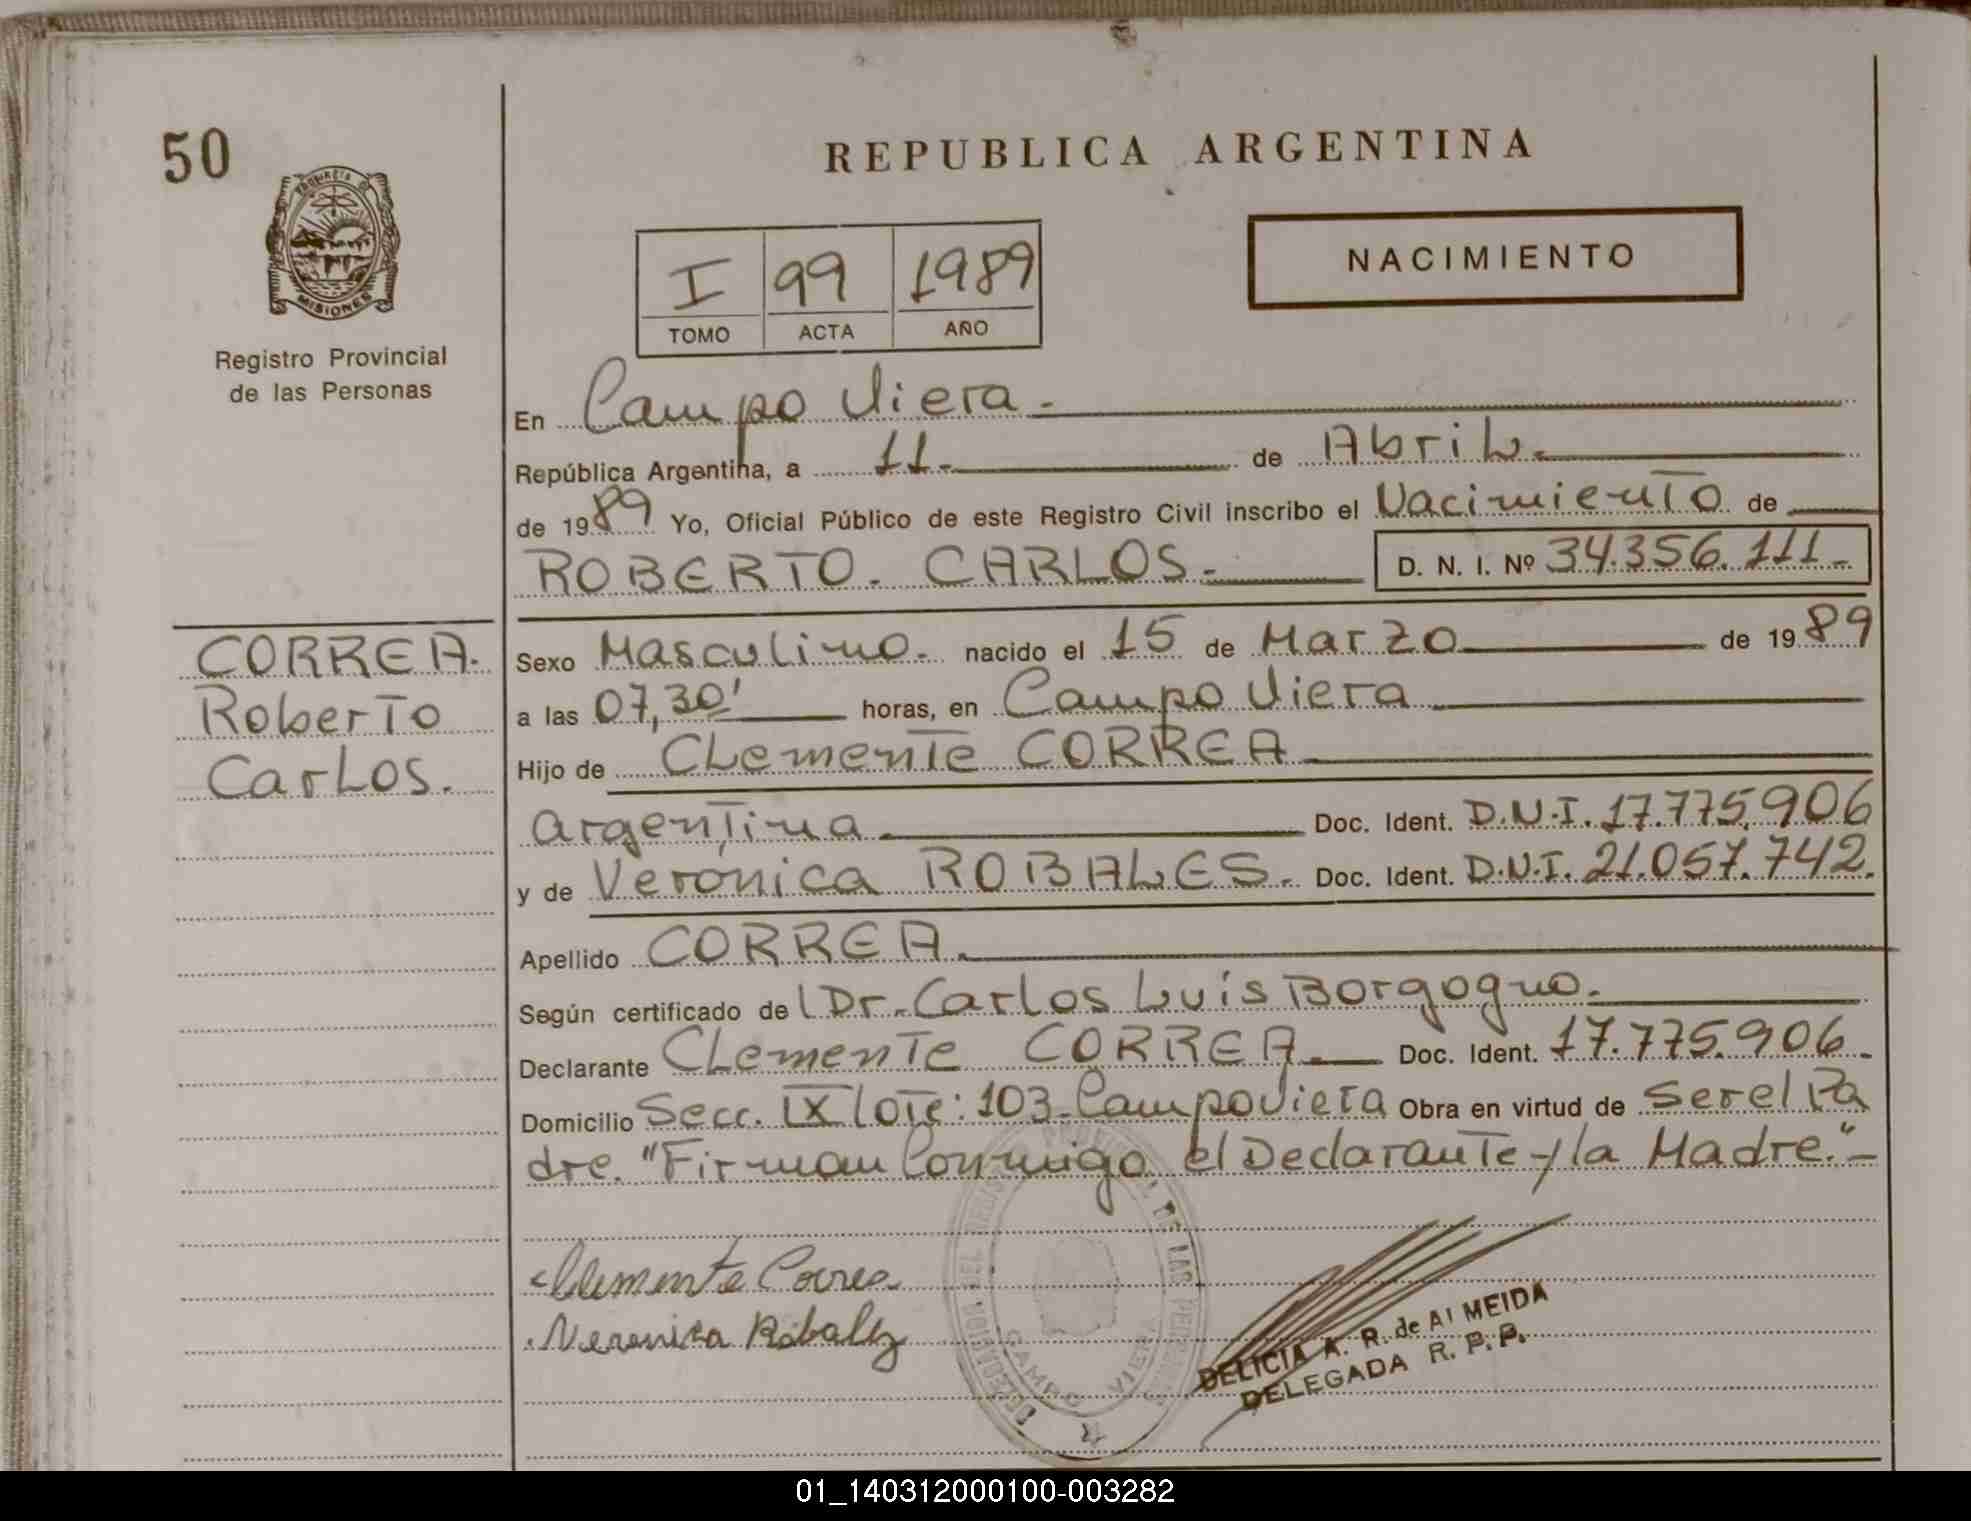 50
PROVINCIA DE
MISIONES
Registro Provincial
de las Personas
REPUBLICA ARGENTINA
I 99 1989
TOMO ACTA AÑO
NACIMIENTO
En Campo Viera.-
República Argentina, a 11.- de Abril.-
de 1989 Yo, Oficial Público de este Registro Civil inscribo el Nacimiento de
ROBERTO. CARLOS.- D. N. I. Nº 34.356.111.-
CORREA.
Roberto
Carlos.
Sexo Masculino. nacido el 15 de Marzo de 1989
a las 07,30' horas, en Campo Viera
Hijo de Clemente CORREA
argentina. Doc. Ident. D.N.I. 17.775.906
y de Verónica ROBALES. Doc. Ident. D.N.I. 21.057.742.
Apellido CORREA.
Según certificado del Dr. Carlos Luis Borgogno.
Declarante Clemente CORREA. Doc. Ident. 17.775.906.
Domicilio Secc. IX lote: 103-Campo Viera Obra en virtud de Ser el Pa
dre. "Firman Conmigo el Declarante y la Madre."-
Clemente Correa
Veronica Robales
DELEGACION DEL REGISTRO PROVINCIAL DE LAS PERSONAS
CAMPO VIERA
DELICIA A. R. de ALMEIDA
DELEGADA R. P. P.
01_140312000100-003282